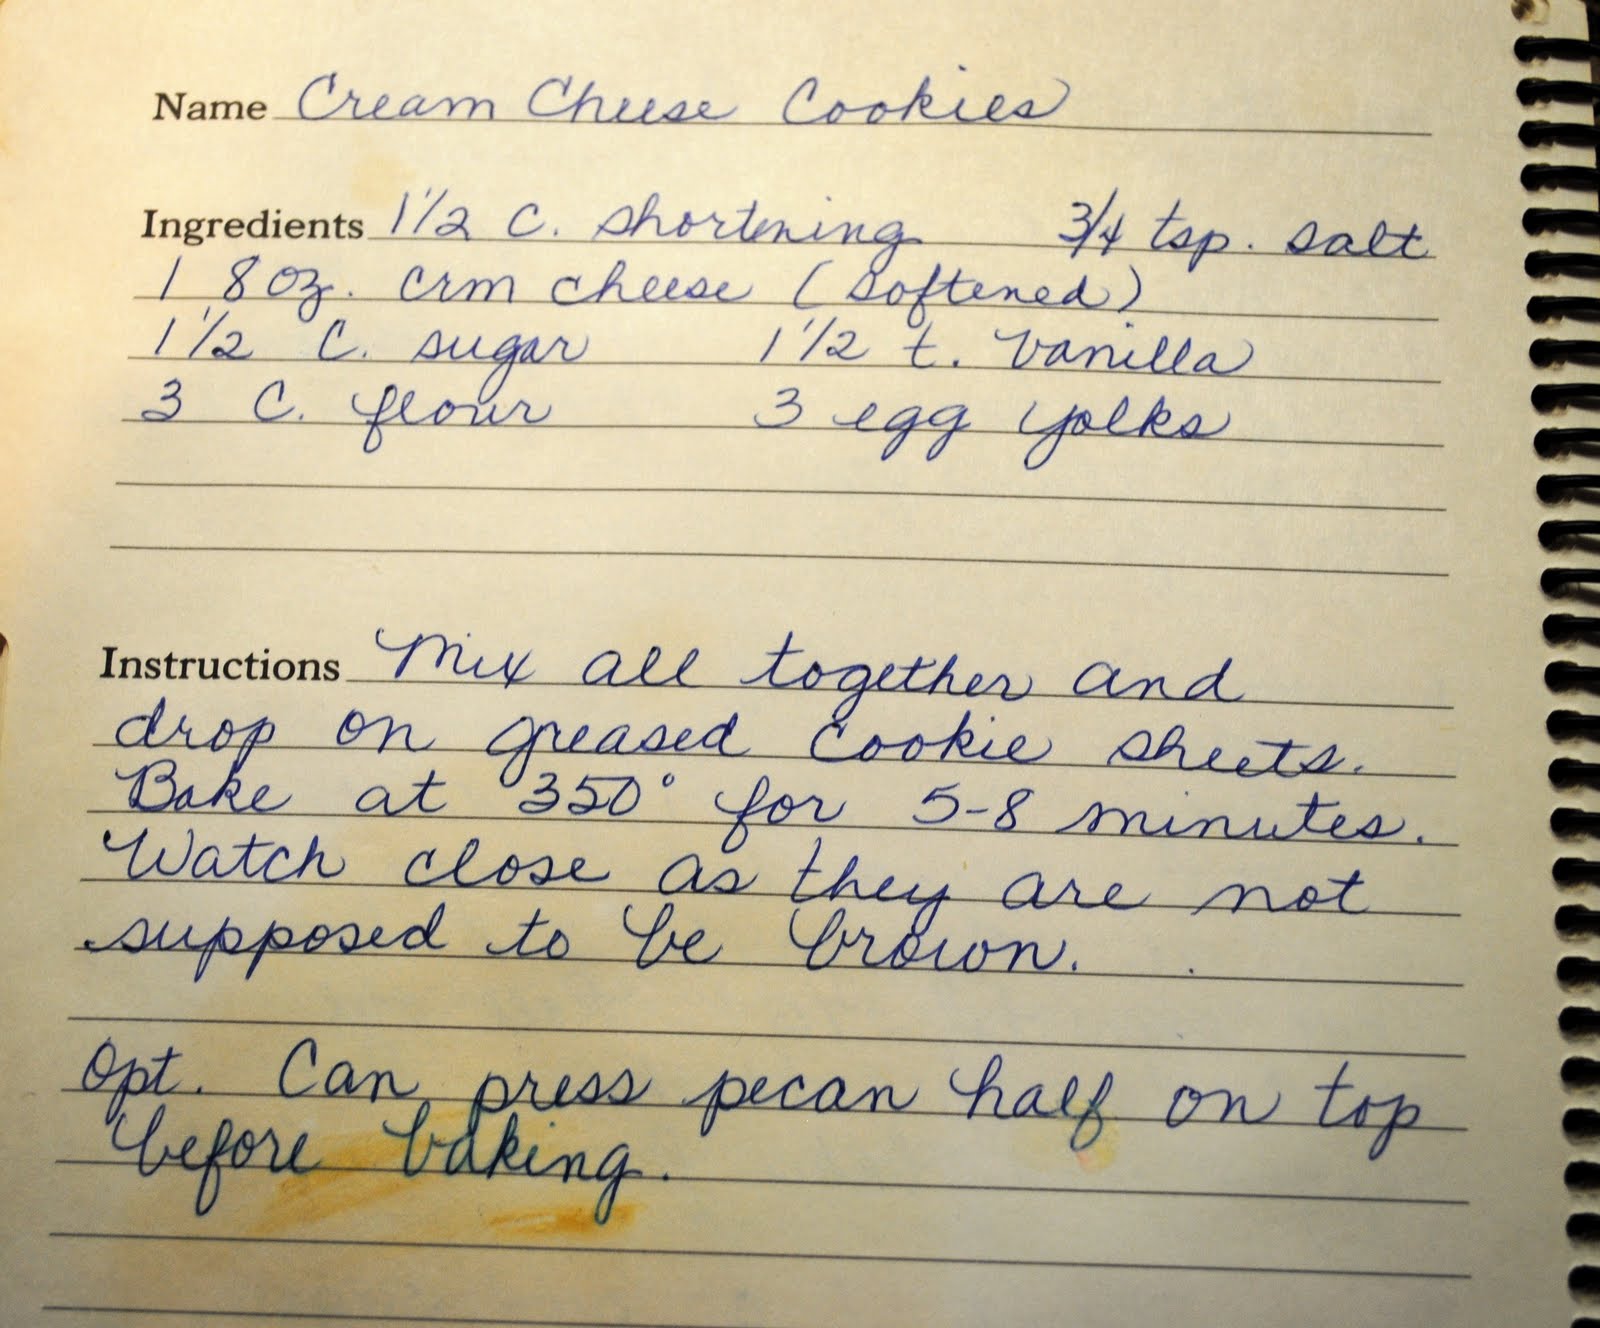 Name Cream Cheese Cookies
Ingredients 1 1/2 C. shortening 3/4 tsp. salt
1 8 oz. crm cheese (softened)
1 1/2 C. sugar 1 1/2 t. vanilla
3 C. flour 3 egg yolks
Instructions Mix all together and
drop on greased cookie sheets.
Bake at 350° for 5-8 minutes.
Watch close as they are not
supposed to be brown.
Opt. Can press pecan half on top
before baking.